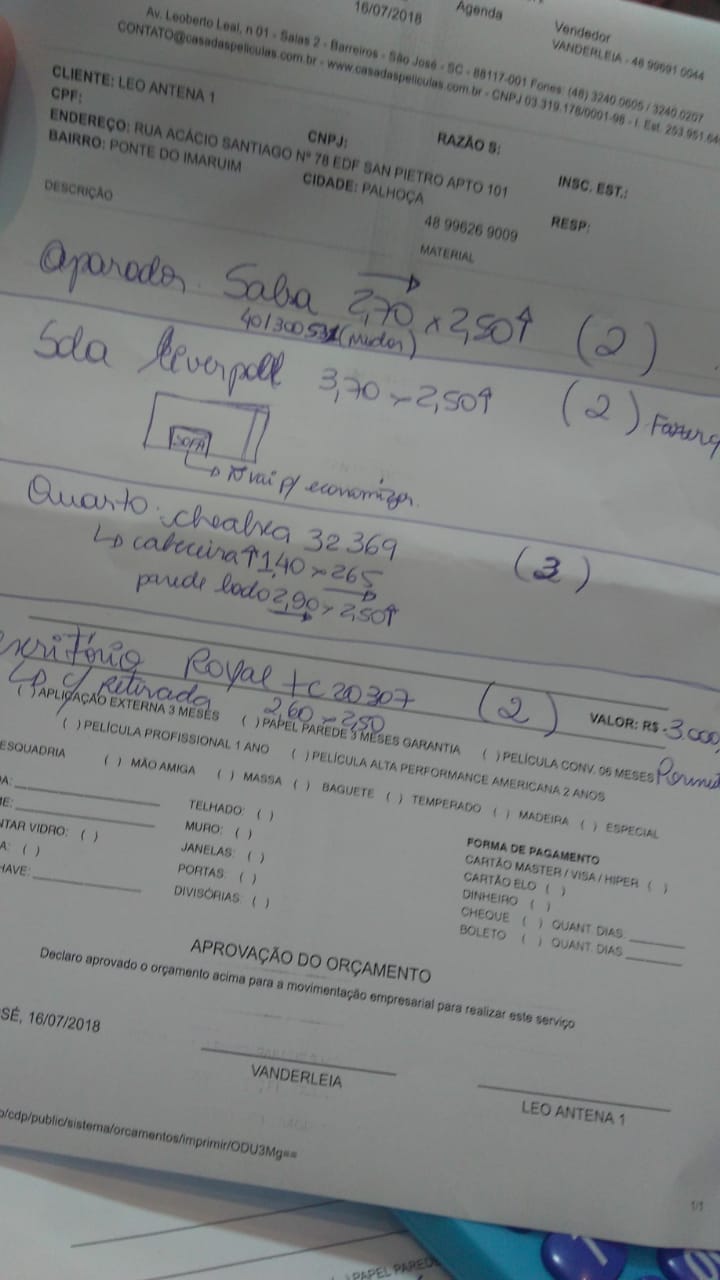 16/07/2018 Agenda Vendedor
VANDERLEIA - 48 99691 0044
Av. Leoberto Leal, n 01 - Salas 2 - Barreiros - São José - SC - 88117-001 Fones: (48) 3240 0605 / 3240 0207
CONTATO@casadaspeliculas.com.br - www.casadaspeliculas.com.br - CNPJ 03.319.176/0001-96 - I. Est. 253.951.64
CLIENTE: LEO ANTENA 1
CPF: CNPJ: RAZÃO S:
ENDEREÇO: RUA ACÁCIO SANTIAGO Nº 78 EDF SAN PIETRO APTO 101 INSC. EST.:
BAIRRO: PONTE DO IMARUIM CIDADE: PALHOÇA
48 99626 9009 RESP:
DESCRIÇÃO MATERIAL
Aparador Saba 2,70 x 2,50 (2)
Sala 3,70 x 2,50 (2)
SOFÁ
vai p/ economizar
Quarto: 32369 (3)
cabeceira 1,40 x 265
parede lado 2,90 x 2,50
Escritório Royal tc 20307 (2) VALOR: R$ -3000,
c/ Retirada 2,60 x 250
( )APLICAÇÃO EXTERNA 3 MESES ( )PAPEL PAREDE 3 MESES GARANTIA ( )PELÍCULA CONV. 06 MESES
( )PELÍCULA PROFISSIONAL 1 ANO ( )PELÍCULA ALTA PERFORMANCE AMERICANA 2 ANOS
ESQUADRIA ( ) MÃO AMIGA ( ) MASSA ( ) BAGUETE ( ) TEMPERADO ( ) MADEIRA ( ) ESPECIAL
TELHADO: ( )
MURO: ( )
NTAR VIDRO: ( ) JANELAS: ( )
A: ( ) PORTAS: ( )
HAVE: DIVISÓRIAS: ( )
FORMA DE PAGAMENTO
CARTÃO MASTER / VISA / HIPER ( )
CARTÃO ELO ( )
DINHEIRO ( )
CHEQUE ( ) QUANT. DIAS
BOLETO ( ) QUANT. DIAS
APROVAÇÃO DO ORÇAMENTO
Declaro aprovado o orçamento acima para a movimentação empresarial para realizar este serviço
SÉ, 16/07/2018
VANDERLEIA LEO ANTENA 1
o/cdp/public/sistema/orcamentos/imprimir/ODU3Mg==
1/1
PAPEL PAREDE